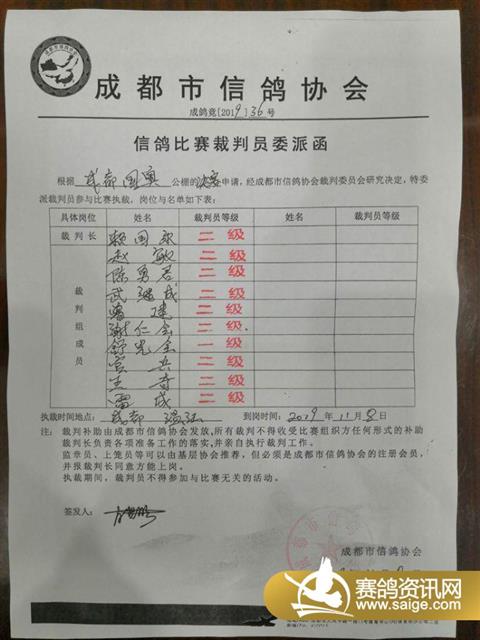 成都市信鸽协会
成鸽竞[2019]36号
信鸽比赛裁判员委派函
根据 成都国奥 公棚的 决赛 申请,经成都市信鸽协会裁判委员会研究决定,特委
派裁判员参与比赛执裁,岗位与名单如下表:
具体岗位 姓名 裁判员等级 姓名 裁判员等级
裁判长 赖国 二级
裁判组成员 赵敏 二级
陈勇君 二级
武继成 二级
曾建 二级
谢仁全 二级
舒光全 一级
官兵 二级
王奇 二级
雷成 二级
执裁时间地点: 成都 温江 到岗时间: 2019年11月8日
裁判补助由成都市信鸽协会发放,所有裁判不得收受比赛组织方任何形式的补助
裁判长负责各项准备工作的落实,并亲自执行裁判工作。
监章员、上笼员等可以由基层协会推荐,但必须是成都市信鸽协会的注册会员,
并报裁判长同意方能上岗。
执裁期间,裁判员不得参加与比赛无关的活动。
签发人:
成都市信鸽协会
赛鸽资讯网
www.saige.com